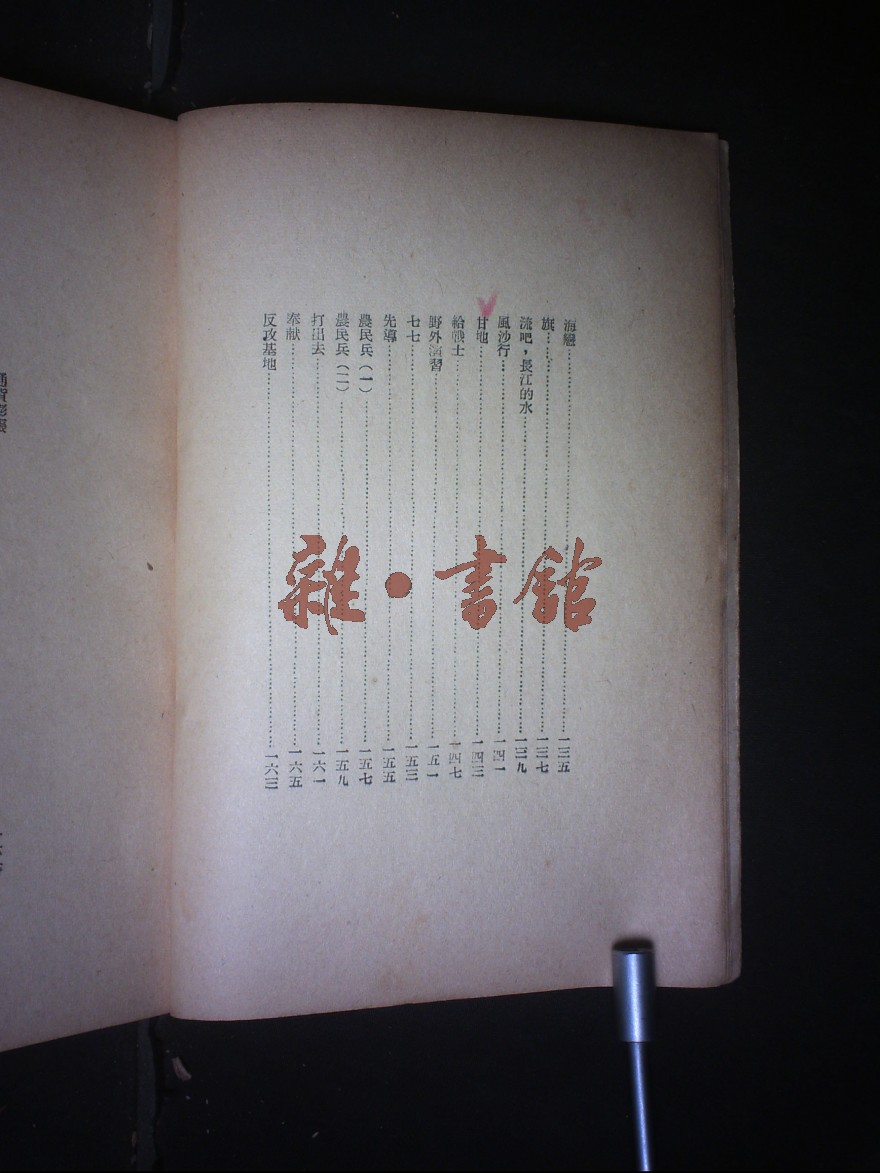 海戀……一三五
旗……一三七
流吧，長江的水……一三九
風沙行……一四一
甘地……一四三
給戰士……一四七
野外演習……一五一
七七……一五三
先導……一五五
農民兵（一）……一五七
農民兵（二）……一五九
打出去……一六一
奉献……一六五
反攻基地……一六三
雜•書館